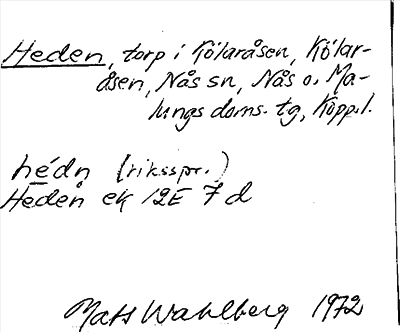 Heden, torp i Kölaråsen, Kölar-
åsen, Nås sn, Nås o. Ma-
lungs doms. tg, Kopp.l.
hédn (riksspr.)
Heden ek 12E 7d
Mats Wahlberg 1972